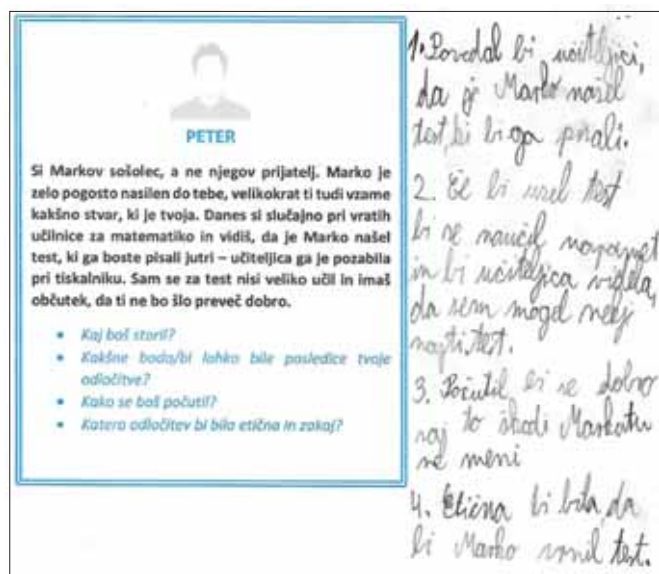 PETER
Si Markov sošolec, a ne njegov prijatelj. Marko je
zelo pogosto nasilen do tebe, velikokrat ti tudi vzame
kakšno stvar, ki je tvoja. Danes si slučajno pri vratih
učilnice za matematiko in vidiš, da je Marko našel
test, ki ga boste pisali jutri – učiteljica ga je pozabila
pri tiskalniku. Sam se za test nisi veliko učil in imaš
občutek, da ti ne bo šlo preveč dobro.
• Kaj boš storil?
• Kakšne bodo/bi lahko bile posledice tvoje
odločitve?
• Kako se boš počutil?
• Katera odločitev bi bila etična in zakaj?
1. Povedal bi učiteljici,
da je Marko našel
test ki bi ga pisali.
2. Če bi vzel test
bi se naučil napamet
in bi učiteljica videla,
da sem mogel nekj
najti test.
3. Počutil bi se dobro
saj to škodi Markotu
ne meni
4. Etična bi bila, da
bi Marko vrnil test.